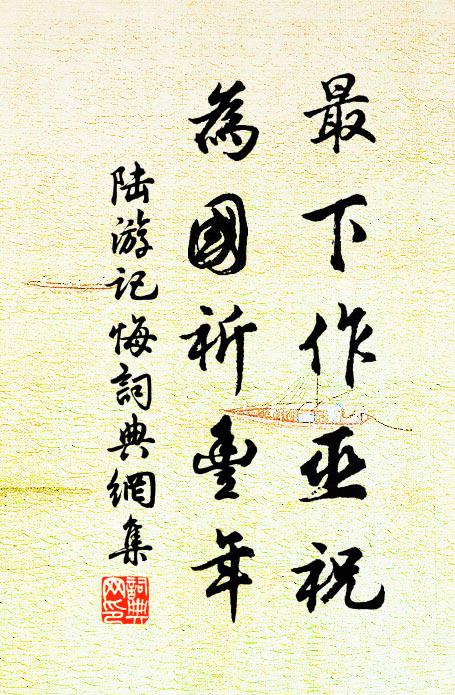 最下作巫祝
為國祈豐年
陸游記悔詞典網集
詞典
网印